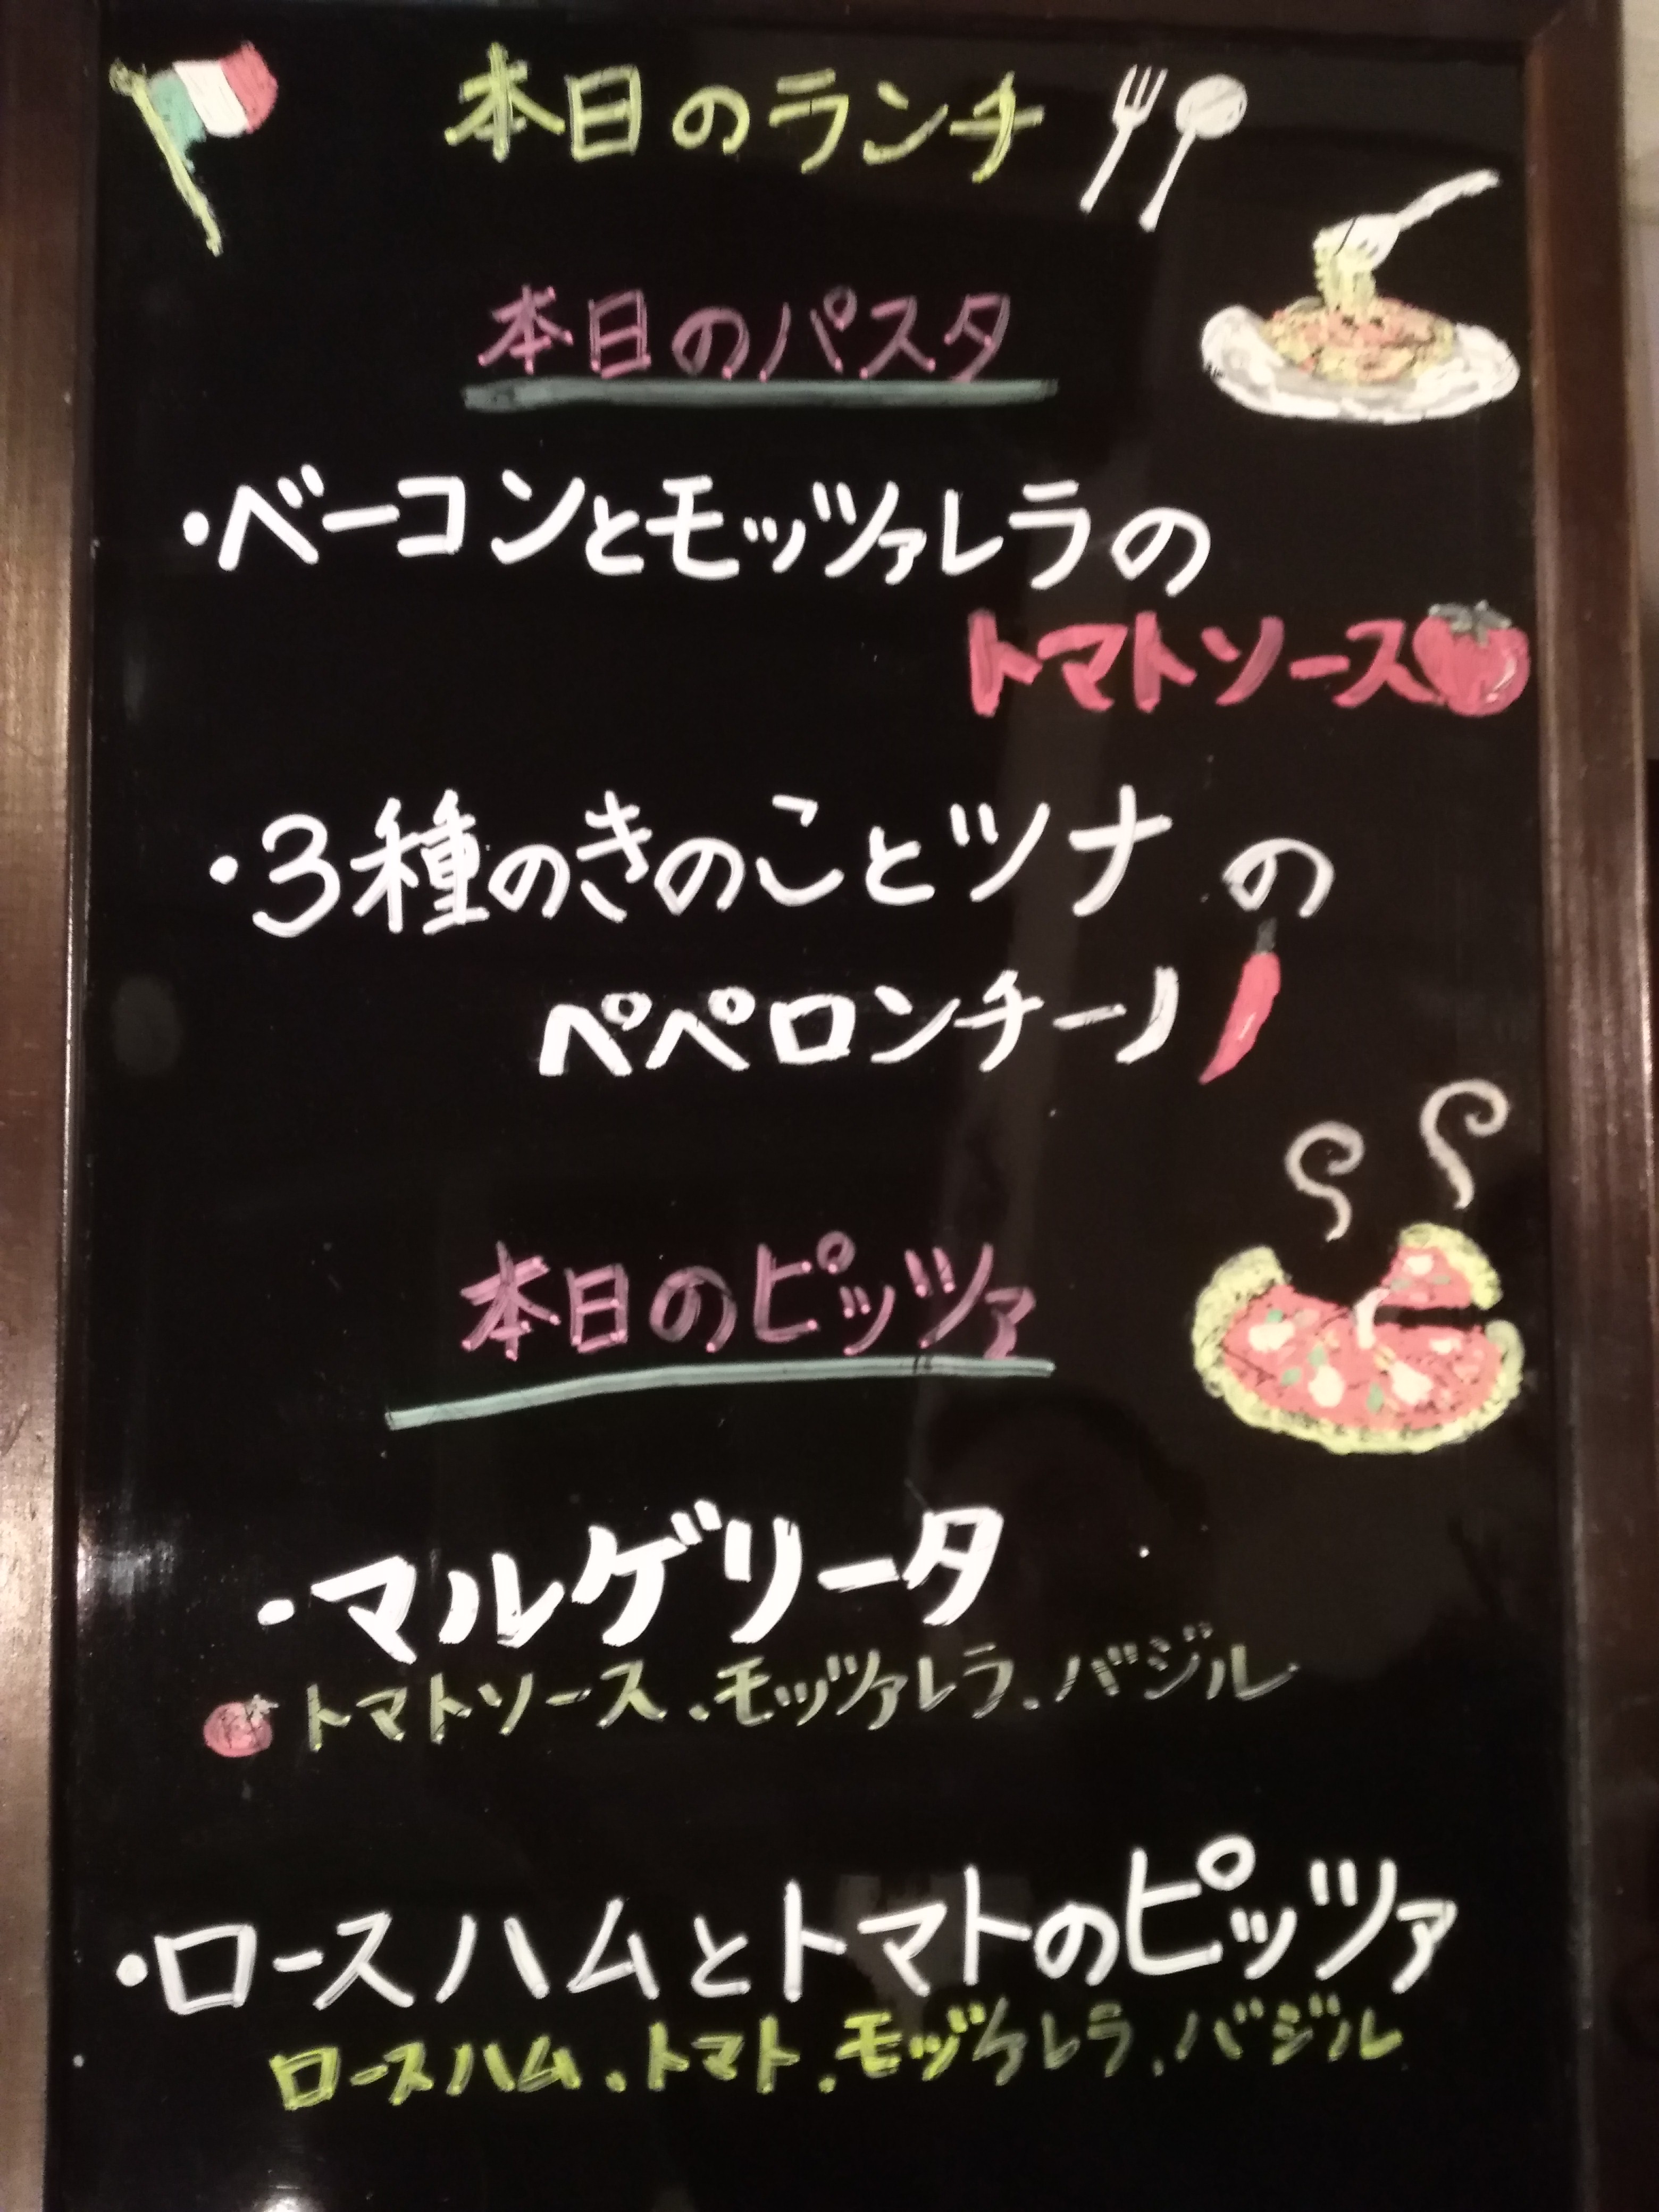 本日のランチ
本日のパスタ
・ベーコンとモッツァレラの
トマトソース
・3種のきのことツナの
ペペロンチーノ
本日のピッツァ
・マルゲリータ
トマトソース、モッツァレラ、バジル
・ロースハムとトマトのピッツァ
ロースハム、トマト、モッツァレラ、バジル